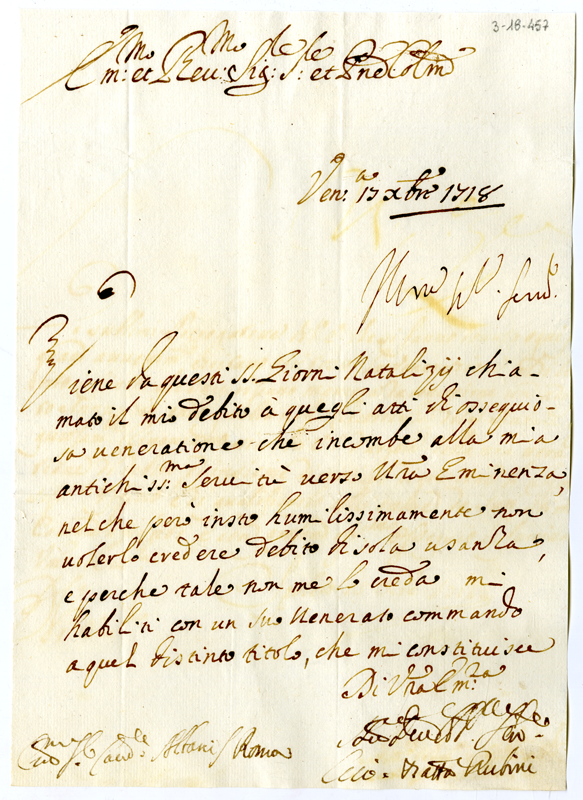 3-18-457
Em:mo et Reu:mo Sig:e S:le et Pne Colmo
Ven:a 17 xbre 1718
Viene da questi SS. Giorni Natalizÿ chia-
mato il mio debito à quegli atti di ossequio-
sa ueneratione che incombe alla mia
antichiss:ma Seruitù verso Vra Eminenza,
nel che però insto humilissimamente non
uolerlo credere debito di sola usanza,
e perche tale non me lo creda mi
habiliti con un suo Venerato commando
a quel distinto titolo, che mi constituisce
Di Vra Em:za
Gio: Batta Rubini
Card:le Albani Roma